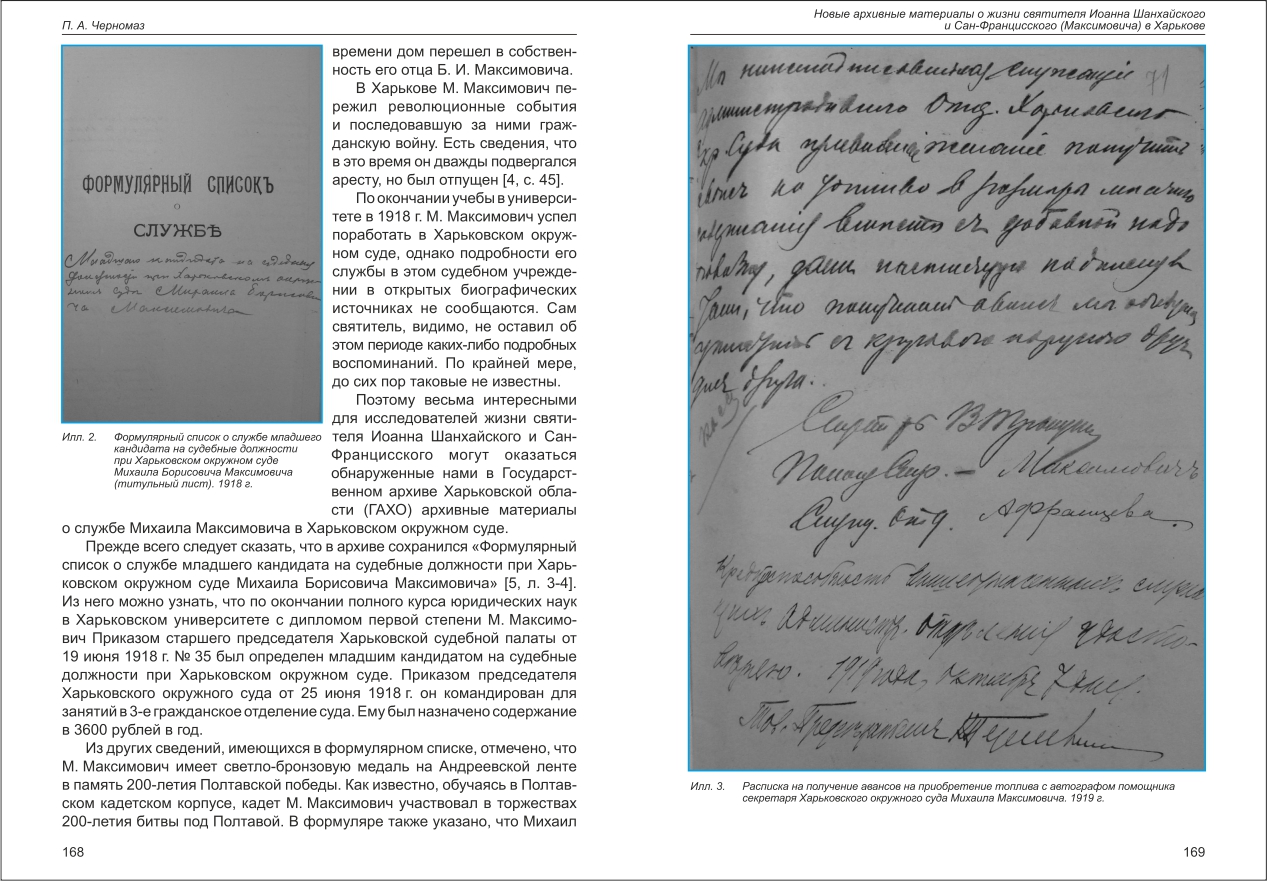 П. А. Черномаз
ФОРМУЛЯРНЫЙ СПИСОКЪ
О
СЛУЖБѢ
Младшаго кандидата на судебныя
должности при Харьковскомъ окруж-
номъ суде Михаила Борисови-
ча Максимовича
Илл. 2. Формулярный список о службе младшего
кандидата на судебные должности
при Харьковском окружном суде
Михаила Борисовича Максимовича
(титульный лист). 1918 г.
времени дом перешел в собствен-
ность его отца Б. И. Максимовича.
В Харькове М. Максимович пе-
режил революционные события
и последовавшую за ними граж-
данскую войну. Есть сведения, что
в это время он дважды подвергался
аресту, но был отпущен [4, с. 45].
По окончании учебы в универси-
тете в 1918 г. М. Максимович успел
поработать в Харьковском окруж-
ном суде, однако подробности его
службы в этом судебном учрежде-
нии в открытых биографических
источниках не сообщаются. Сам
святитель, видимо, не оставил об
этом периоде каких-либо подробных
воспоминаний. По крайней мере,
до сих пор таковые не известны.
Поэтому весьма интересными
для исследователей жизни святи-
теля Иоанна Шанхайского и Сан-
Францисского могут оказаться
обнаруженные нами в Государст-
венном архиве Харьковской обла-
сти (ГАХО) архивные материалы
о службе Михаила Максимовича в Харьковском окружном суде.
Прежде всего следует сказать, что в архиве сохранился «Формулярный
список о службе младшего кандидата на судебные должности при Харь-
ковском окружном суде Михаила Борисовича Максимовича» [5, л. 3-4].
Из него можно узнать, что по окончании полного курса юридических наук
в Харьковском университете с дипломом первой степени М. Максимо-
вич Приказом старшего председателя Харьковской судебной палаты от
19 июня 1918 г. № 35 был определен младшим кандидатом на судебные
должности при Харьковском окружном суде. Приказом председателя
Харьковского окружного суда от 25 июня 1918 г. он командирован для
занятий в 3-е гражданское отделение суда. Ему был назначено содержание
в 3600 рублей в год.
Из других сведений, имеющихся в формулярном списке, отмечено, что
М. Максимович имеет светло-бронзовую медаль на Андреевской ленте
в память 200-летия Полтавской победы. Как известно, обучаясь в Полтав-
ском кадетском корпусе, кадет М. Максимович участвовал в торжествах
200-летия битвы под Полтавой. В формуляре также указано, что Михаил
168
Новые архивные материалы о жизни святителя Иоанна Шанхайского
и Сан-Францисского (Максимовича) в Харькове
71
Мы нижеподписавшіеся служащіе
Отд. Харьковскаго
Окр. Суда желаніе получить
авансъ на топливо в размѣрѣ
вместе съ добавкой
даем настоящую подписку в
том, что получивъ авансъ мы
съ круговою порукою друг
для друга.
Секретарь
Помощ. Секр. – Максимовичъ
Служ. Отд.
служа-
щихъ Административ. отделения удосто-
веряю. 1919 года, октября 7 дня.
Тов. Председателя
Илл. 3. Расписка на получение авансов на приобретение топлива с автографом помощника
секретаря Харьковского окружного суда Михаила Максимовича. 1919 г.
169